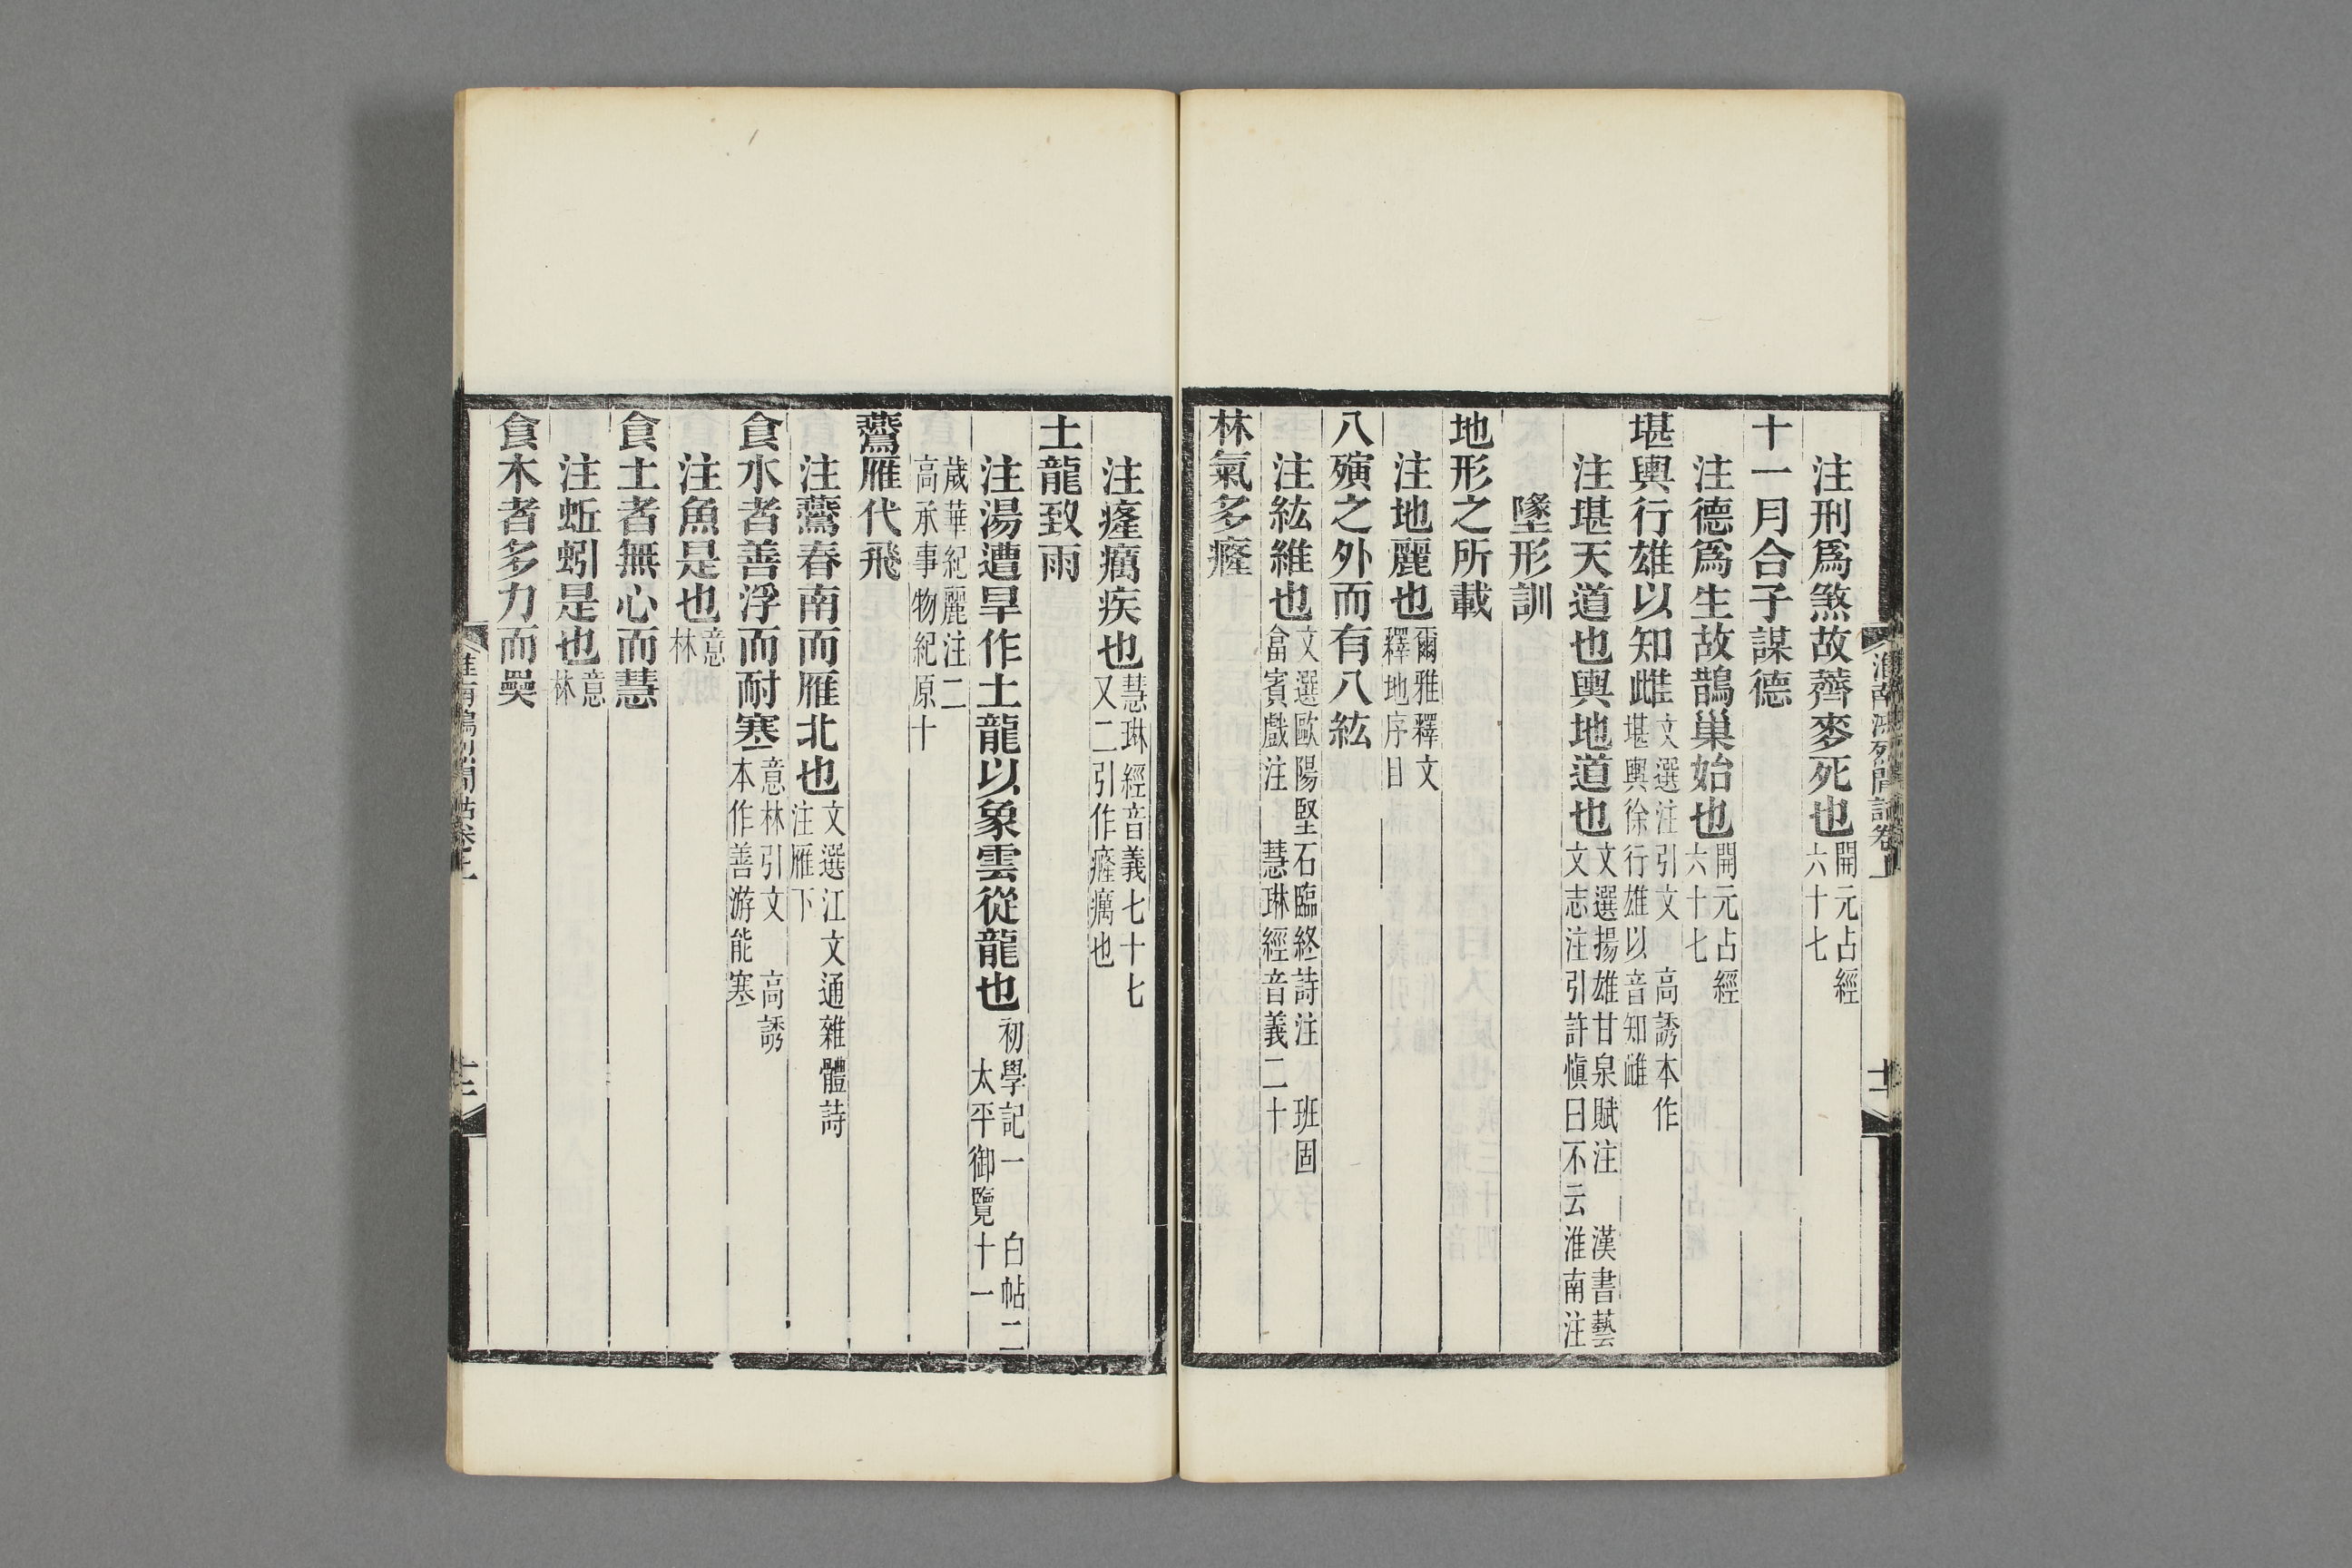 淮南鴻烈閒詁卷上
十一
注刑爲煞故薺麥死也開元占經六十七
十一月合子謀德
注德爲生故鵲巢始也開元占經六十七
堪輿行雄以知雌文選注引文 高誘本作堪輿徐行雄以音知雌
注堪天道也輿地道也文選揚雄甘泉賦注 漢書藝文志注引許愼曰不云淮南注
墬形訓
地形之所載
注地麗也爾雅釋文釋地序目
八殥之外而有八紘
注紘維也文選歐陽堅石臨終詩注 班固畣賓戲注 慧琳經音義二十
林氣多癃
注癃癘疾也慧琳經音義七十七又二引作癃癘也
土龍致雨
注湯遭旱作土龍以象雲從龍也初學記一 白帖二 太平御覽十一
歲華紀麗注二高承事物紀原十
鷰雁代飛
注鷰春南而雁北也文選江文通雜體詩注雁下
食水者善浮而耐寒意林引文 高誘本作善游能寒
注魚是也意林
食土者無心而慧
注蚯蚓是也意林
食木者多力而奰
十二